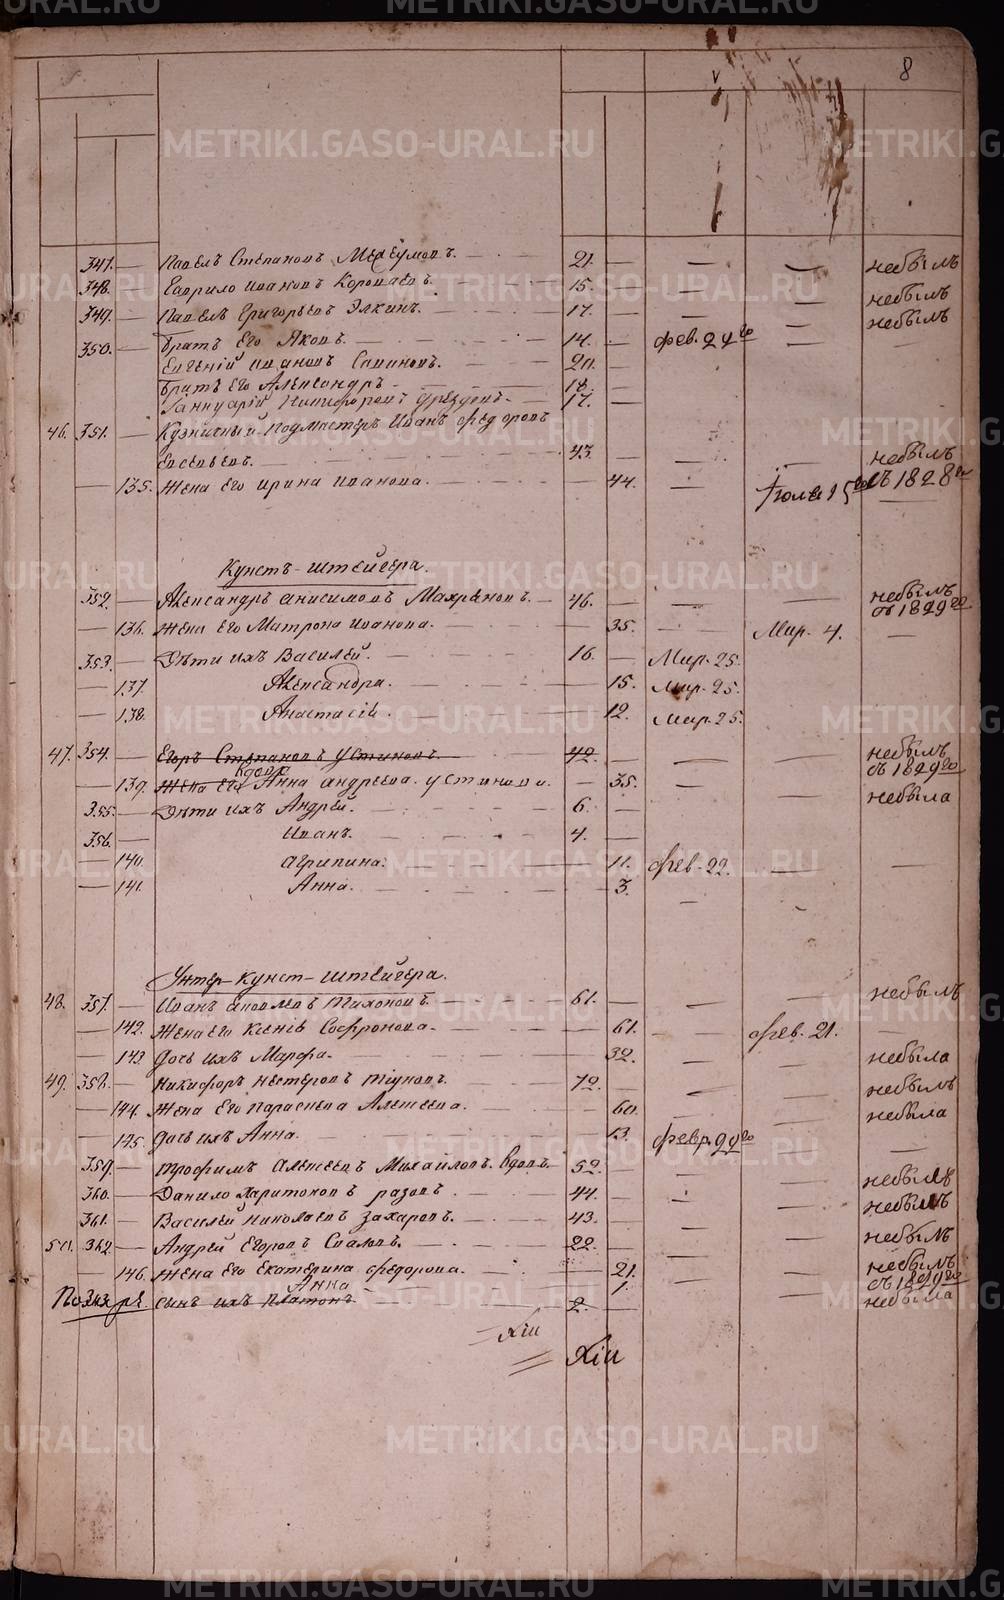 8
347. Павелъ Степановъ 21. небылъ
348. Гаврило Ивановъ 15. небылъ
349. Павелъ Григорьевъ Элкинъ. 17. небылъ
350. Братъ Его Яковъ. 14. фев. 29го
Евгений Ивановъ 20.
Братъ Его Александръ 18.
Ианнуарий Никифоровъ 17.
46. 351. Кузничный подмастеръ Иванъ Федоровъ
Евсевьевъ. 43. небылъ
съ 1828го
135. Жена Его Ирина Иванова. 44.
Кунстъ-штейгера.
352. Александръ Анисимовъ 46. небылъ
съ 1829го
136. Жена Его Матрона Иванова. 35. Мар. 4.
353. Дѣти ихъ Василей. 16. Мар. 25.
137. Александра. 15. Мар. 25.
138. Анастасiя. 12. Мар. 25.
47. 354. Егоръ Степановъ Устиновъ. 42. небылъ
съ 1829го
вдова
139. Жена Его Анна Андреева. Устинова. 35. небыла
355. Дѣти ихъ Андрей. 6.
356. Иванъ. 4.
140. Агрипина. 11. фев. 22.
141. Анна. 3.
Унтер-кунст-штейгера.
48. 357. Иванъ Тихоновъ. 61. небылъ
142. Жена его Ксенiя Софронова. 61. фев. 21.
143. Дочь ихъ Марфа. 32. небыла
49. 358. Никифоръ Нестеровъ 72. небылъ
144. Жена Его Парасковья Алексеева. 60. небыла
145. Дочь ихъ Анна. 13. февр. 29го
359. Трофимъ Алексеевъ Михайловъ. вдовъ. 52. небылъ
360. Данило Харитоновъ 44. небылъ
361. Василей Николаевъ Захаровъ. 43. небылъ
50. 362. Андрей Егоровъ 22. небылъ
съ 1829го
146. Жена Его Екатерина Федорова. 21. небыла
Анна 1.
сынъ ихъ Платонъ 2.
METRIKI.GASO-URAL.RU